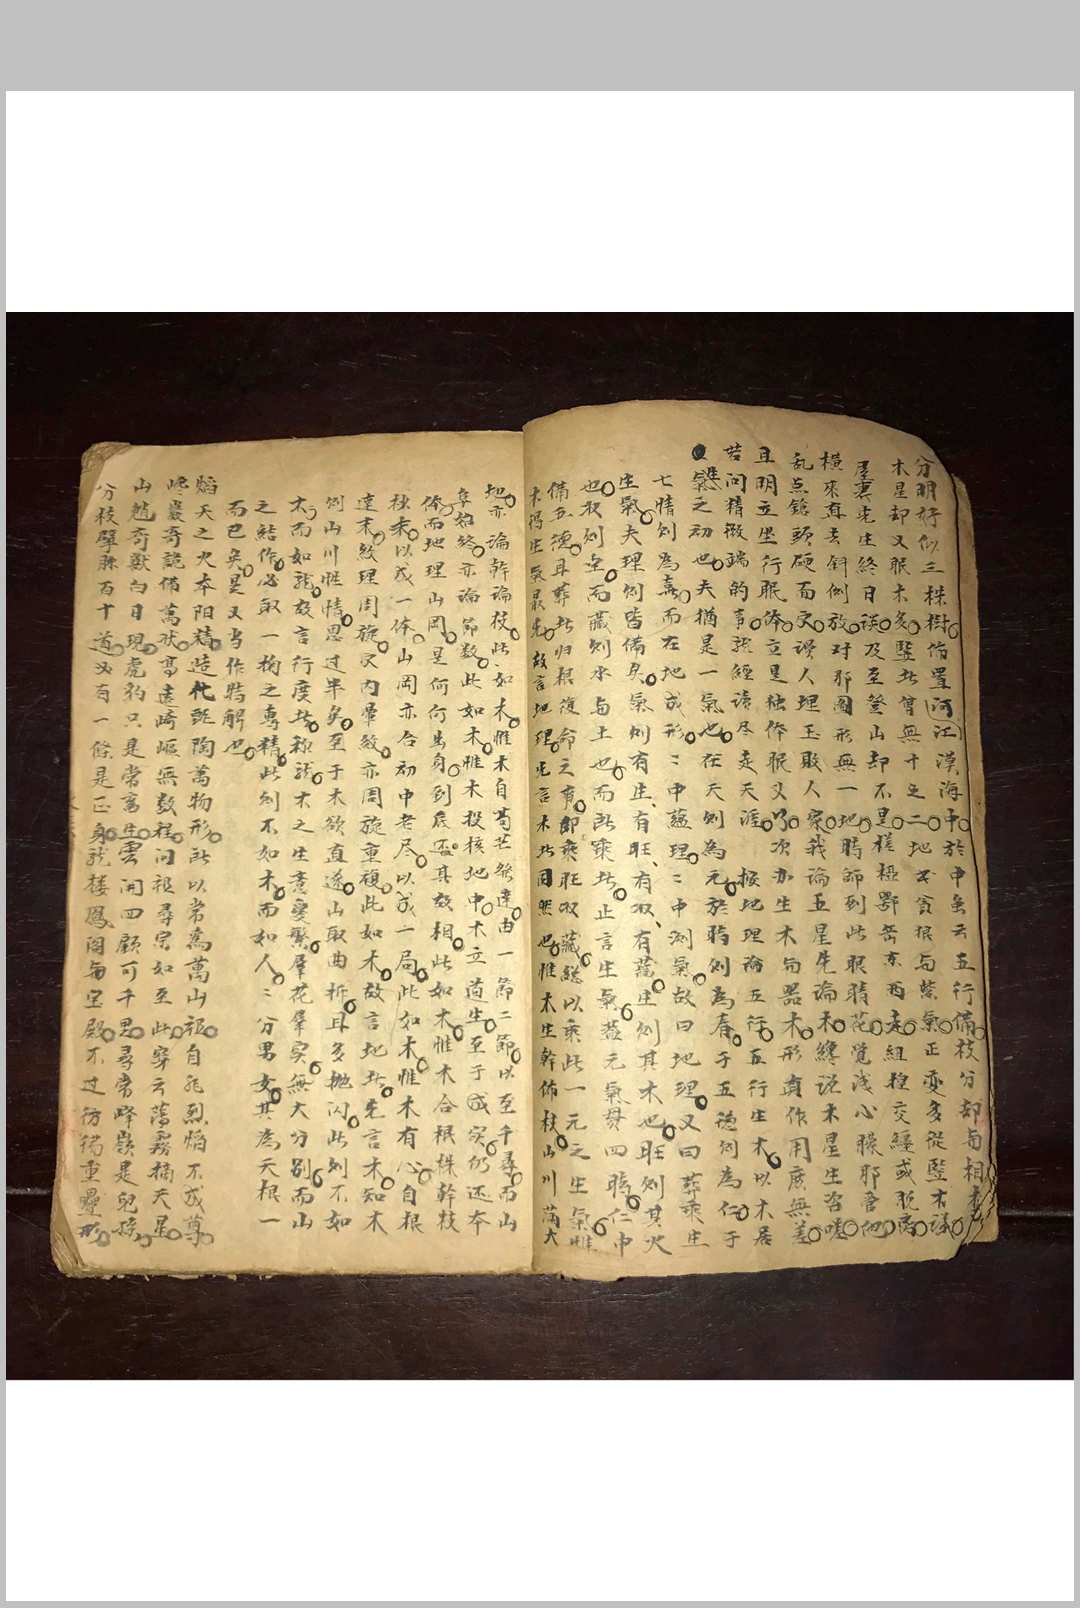 分明好似三株樹偹置河江漠海中於中每云五行備枝分却与相木
木星却又眠木多竪此曾無十之二地不貪根与紫氣正变多從竪木議
屋裏先生終日談及至登山却不是槎椏鄂岳东西走組捏交經或脫离
橫來直去斜倒放对耶圖形無一地時師到此眼睛花覚浅心朦耶吾他
乱点鎗頭硬而灾誤人埋玉敗人家我論五星先論木終说木星生咨嗟
且明立坐行眠体立是独体眠又次亦生木句器木形直作用廣無差
若问精微端的事就經讀尽走天涯 極地理論五行五行生木以木居
氣之初也夫猶是一氣也在天則為元於時則為春于五德則為仁于
七情則為喜而在地成形二中蘊理二中測氣故曰地理又曰葬乘生
生氣夫理則皆備矣氣則有生有旺有收有藏生則其木也旺則其火
也收則金而藏則水与土也而所乘此正言生氣蓋元氣畀四時仁中
備五德耳葬此归根復命之事即乘旺收藏總以乘此一元之生氣惟
木得生氣最先故言地理先言木此固然也惟木生幹佈枝山川滿大
地亦論幹論枝此如木惟木自萌芒發達由一節二節以至千尋而山
章始終亦論節数此如木惟木投核地中木立道生至于成実仍还本
体而地理山岡是何何出身到底盃其故相此如木惟木合根株幹枝
秋末以成一体山岡亦合初中老尽以成一局此如木惟木有心自根
達末紋理周旋灾内暈紋亦周旋重複此如木故言地此先言木知木
例山川性情思过半矣至于木欲直遂山取曲折耳多抛闪此則不如
木而如龍故言行度此称龍木之生意变繁犀花犀実無大分别而山
之結作必取一构之專精此則不如木而如人二分男女其為天根一
而已矣是又当作時解也
焰天之火本阳精造化甄陶萬物形所以常為萬山祖自能烈焰不成尊
巉巖奇詭備萬状高遠崎嶇無数程问祖尋宗如至此穿云蕩霧摘天星
山魈奇獸白日現虎豹只是常高生雲闭四顧可千思尋常峰巔是兒孫
分枝擘脉百十道必有一條是正身就楼鳳阁与宝殿不过彷彿重疊形